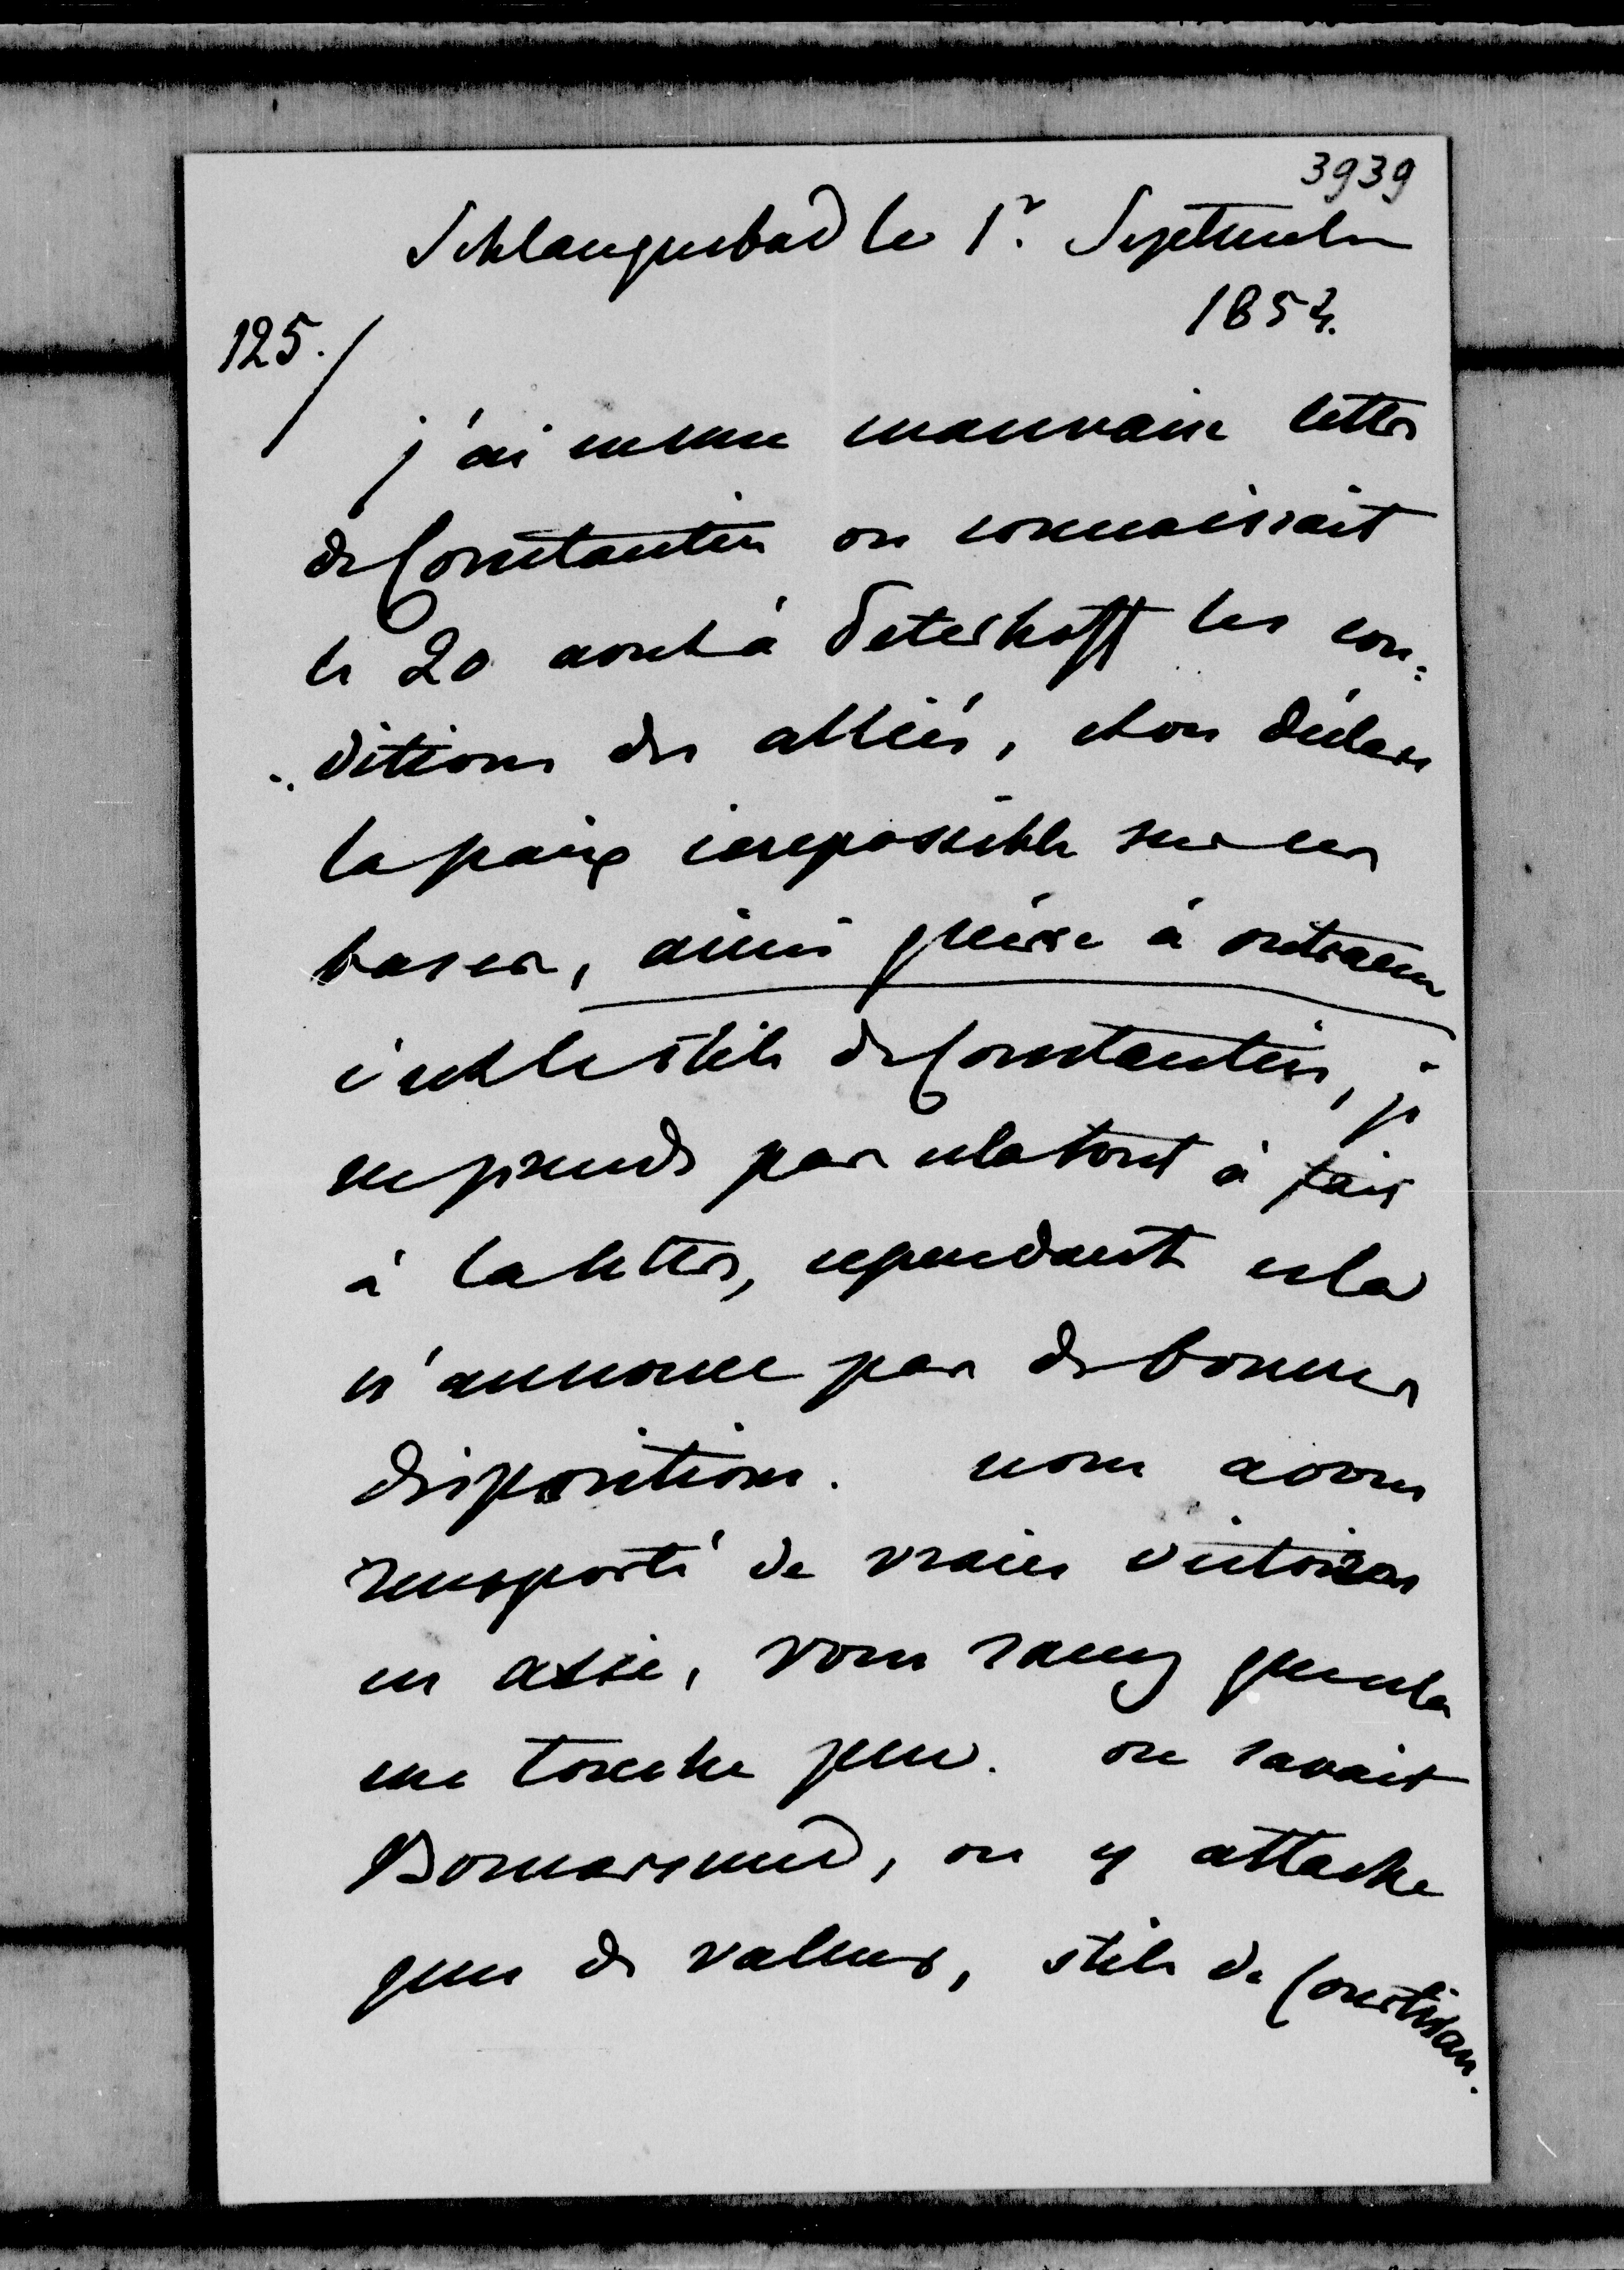 3939
Schlangenbad le 1r. Septembre
1854.
125./
j'ai eu une mauvaise lettre
de Constantin on connaissait
le 20 aout à Peterhoff les con=
=ditions des alliés, et on déclare
la paix impossible sur ces
bases, ainsi guerre à outrance
c'est le stile de Constantin, je
ne prends pas cela tout à fait
à la lettre, cependant cela
n'annonce pas de bonnes
dispositions. nous avons
remporté de vraies victoires
en asie, vous savez que cela
me touche peu. on savait
Bomarsund, on y attache
peu de valeur, stile de Courtisan.